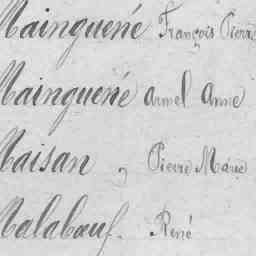 Mainguené François Pierre
Mainguené Armel Anne
Maisan, Pierre Marie
Malabœuf. René